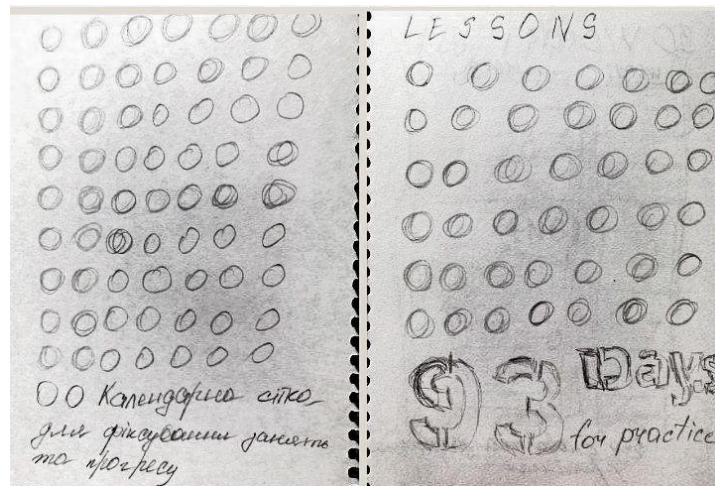 Календарна сітка
для фіксування занять
та прогресу
LESSONS
93 Days
for practice